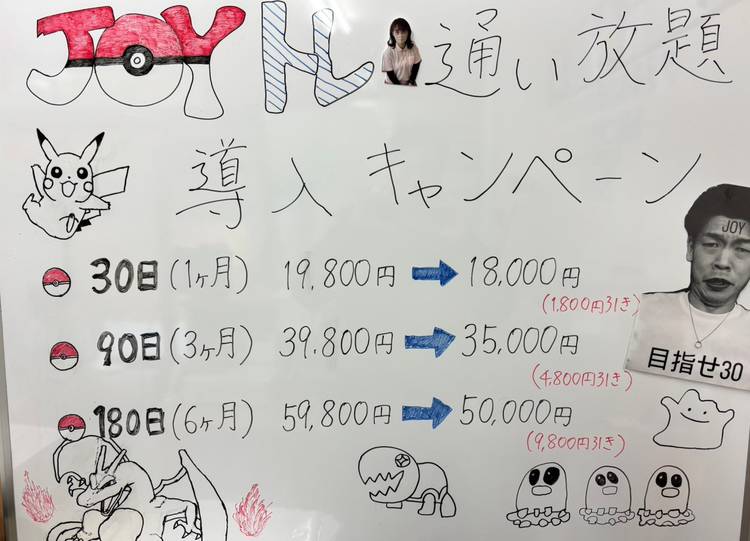 JOYトレ通い放題
導入キャンペーン
30日(1ヶ月) 19,800円 18,000円
(1,800円引き)
90日(3ヶ月) 39,800円 35,000円
(4,800円引き)
180日(6ヶ月) 59,800円 50,000円
(9,800円引き)
JOY
目指せ30